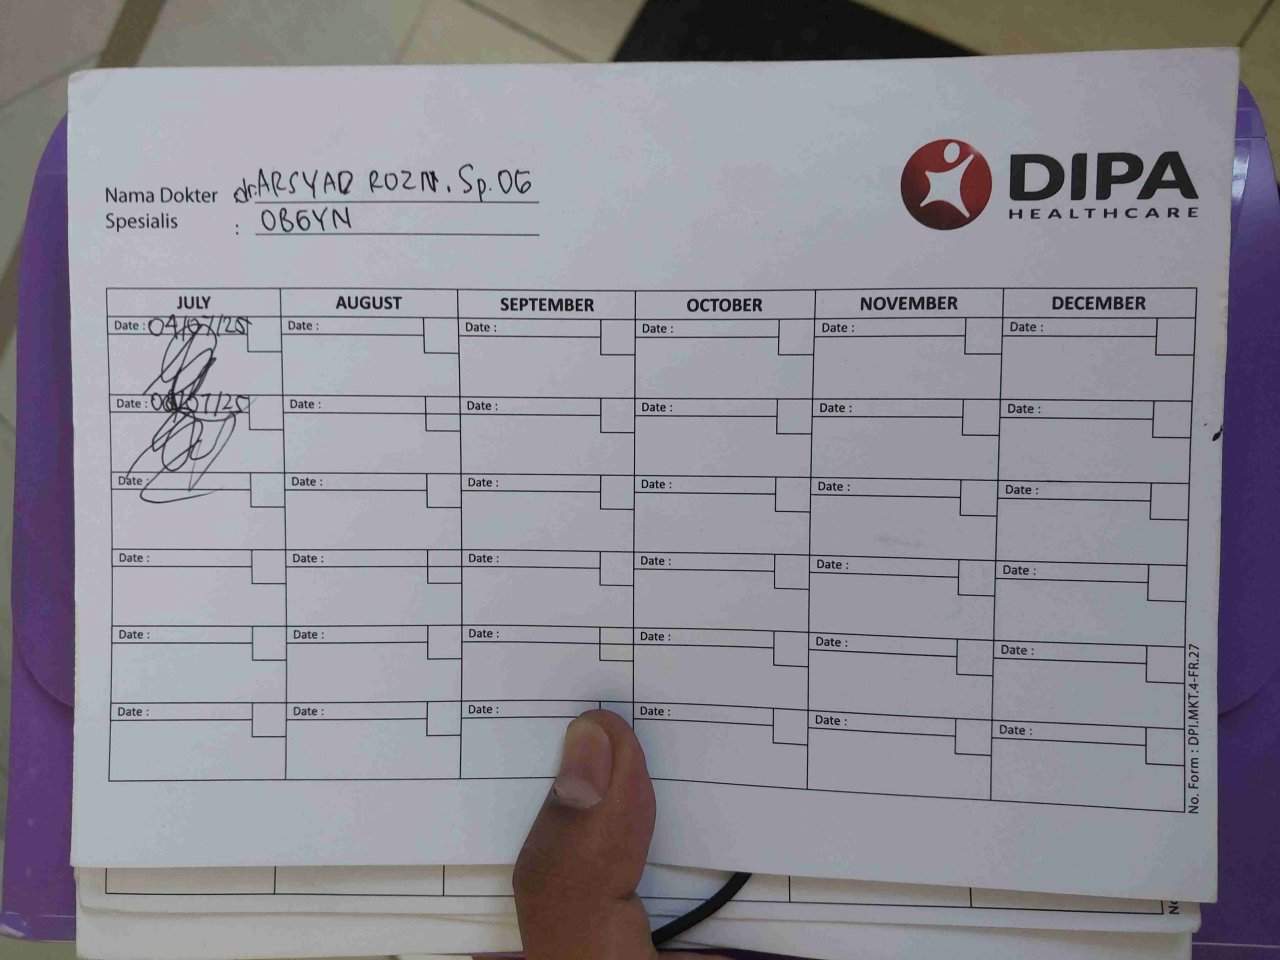 DIPA
HEALTHCARE
Nama Dokter dr. ARSYAD ROZN. Sp.OG
Spesialis : OBGYN
JULY AUGUST SEPTEMBER OCTOBER NOVEMBER DECEMBER
Date : 04/07/25 Date : Date : Date : Date : Date :
Date : /07/25 Date : Date : Date : Date : Date :
Date : Date : Date : Date : Date : Date :
Date : Date : Date : Date : Date : Date :
Date : Date : Date : Date : Date : Date :
Date : Date : Date : Date : Date : Date :
No. Form : DPI.MKT.4-FR.27